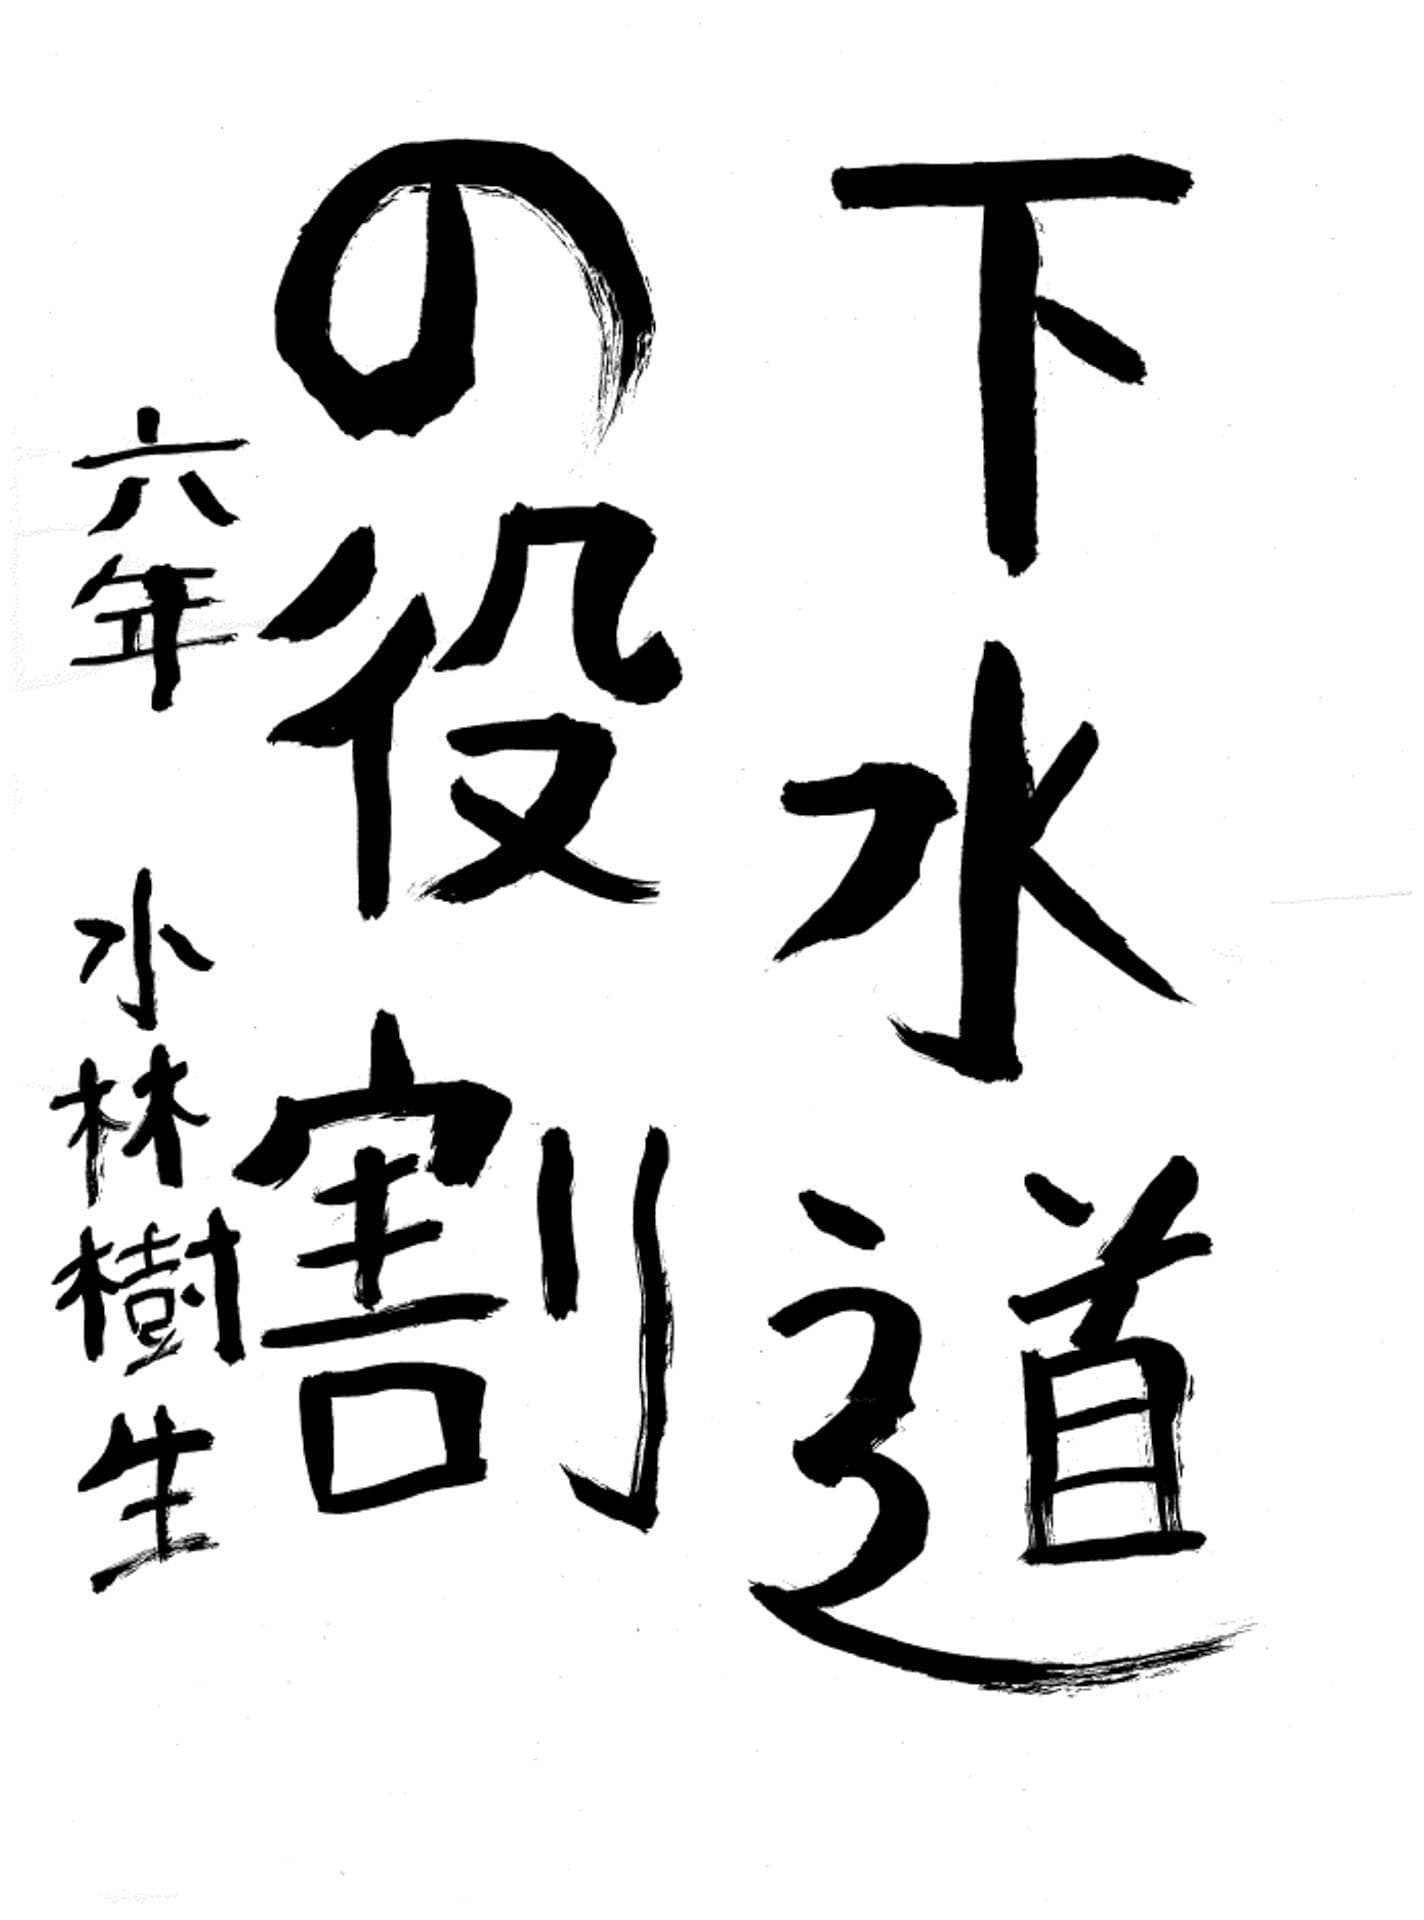 下水道
の役割
六年 小林樹生